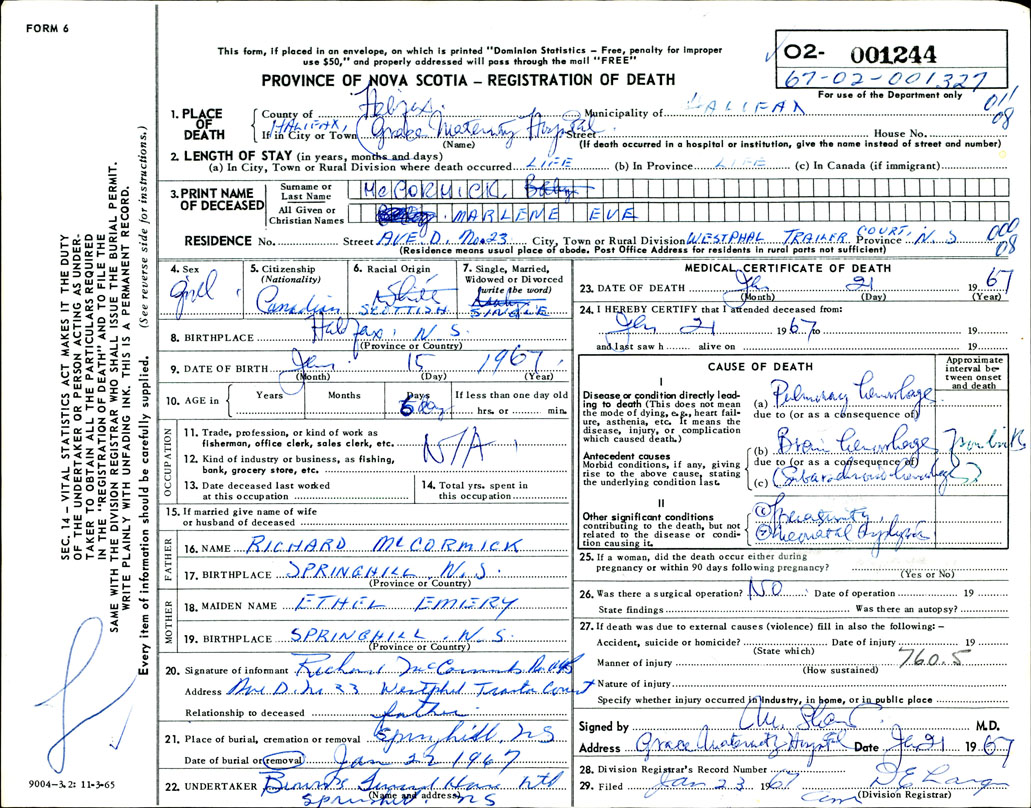 FORM 6
This form, if placed in an envelope, on which is printed "Dominion Statistics – Free, penalty for improper
use $50," and properly addressed will pass through the mail "FREE"
PROVINCE OF NOVA SCOTIA – REGISTRATION OF DEATH
02- 001244
67-02-001327
For use of the Department only
011
08
1. PLACE OF DEATH
County of Halifax Municipality of HALIFAX
HALIFAX, If in City or Town Grace Maternity Hospital Street House No.
(Name) (If death occurred in a hospital or institution, give the name instead of street and number)
2. LENGTH OF STAY (in years, months and days)
(a) In City, Town or Rural Division where death occurred LIFE (b) In Province LIFE (c) In Canada (if immigrant)
3. PRINT NAME OF DECEASED
Surname or Last Name McCORMICK, Baby
All Given or Christian Names MARLENE EVE
RESIDENCE No. Street AVE D. No. 23 City, Town or Rural Division WESTPHAL TRAILER COURT, Province N.S
(Residence means usual place of abode. Post Office Address for residents in rural parts not sufficient)
000
08
4. Sex
Girl
5. Citizenship
(Nationality)
Canadian
6. Racial Origin
White
SCOTTISH
7. Single, Married,
Widowed or Divorced
(write the word)
SINGLE
8. BIRTHPLACE Halifax, N.S.
(Province or Country)
9. DATE OF BIRTH Jan 15 1967
(Month) (Day) (Year)
10. AGE in Years Months Days If less than one day old
6 hrs. or min.
OCCUPATION
11. Trade, profession, or kind of work as
fisherman, office clerk, sales clerk, etc. N/A
12. Kind of industry or business, as fishing,
bank, grocery store, etc.
13. Date deceased last worked
at this occupation
14. Total yrs. spent in
this occupation
15. If married give name of wife
or husband of deceased
FATHER
16. NAME RICHARD McCORMICK
17. BIRTHPLACE SPRINGHILL, N.S.
(Province or Country)
MOTHER
18. MAIDEN NAME ETHEL EMERY
19. BIRTHPLACE SPRINGHILL, N.S.
(Province or Country)
20. Signature of informant Richard McCormick
Address Ave D. No 23 Westphal Trailer Court
Relationship to deceased father
21. Place of burial, cremation or removal Springhill, NS
Date of burial or removal Jan 22 1967
22. UNDERTAKER Funeral Home Ltd
(Name and address)
Springhill NS
MEDICAL CERTIFICATE OF DEATH
23. DATE OF DEATH Jan 21 1967
(Month) (Day) (Year)
24. I HEREBY CERTIFY that I attended deceased from:
Jan 21 1967 to 19
and last saw h alive on 19
CAUSE OF DEATH
Approximate interval between onset and death
I
Disease or condition directly leading to death (This does not mean
the mode of dying, e.g., heart failure, asthenia, etc. It means the
disease, injury, or complication
which caused death.)
(a) Pulmonary hemorrhage
due to (or as a consequence of)
Antecedent causes
Morbid conditions, if any, giving
rise to the above cause, stating
the underlying condition last.
(b) Brain hemorrhage
due to (or as a consequence of)
(c) (Subarachnoid hemorrhage)
II
Other significant conditions
contributing to the death, but not
related to the disease or condition causing it.
① Prematurity
② Neonatal
25. If a woman, did the death occur either during
pregnancy or within 90 days following pregnancy?
(Yes or No)
26. Was there a surgical operation? NO Date of operation 19
State findings Was there an autopsy?
27. If death was due to external causes (violence) fill in also the following: –
Accident, suicide or homicide? Date of injury 19
(State which)
Manner of injury 760.5
(How sustained)
Nature of injury
Specify whether injury occurred in industry, in home, or in public place
Signed by M.D.
Address Grace Maternity Hospital Date Jan 21 1967
28. Division Registrar's Record Number
29. Filed Jan 23 1967
(Division Registrar)
SEC. 14 – VITAL STATISTICS ACT MAKES IT THE DUTY
OF THE UNDERTAKER OR PERSON ACTING AS UNDER-
TAKER TO OBTAIN ALL THE PARTICULARS REQUIRED
IN THE "REGISTRATION OF DEATH" AND TO FILE THE
SAME WITH THE DIVISION REGISTRAR WHO SHALL ISSUE THE BURIAL PERMIT.
WRITE PLAINLY WITH UNFADING INK. THIS IS A PERMANENT RECORD.
Every item of information should be carefully supplied. (See reverse side for instructions.)
9004–3.2: 11-3-65